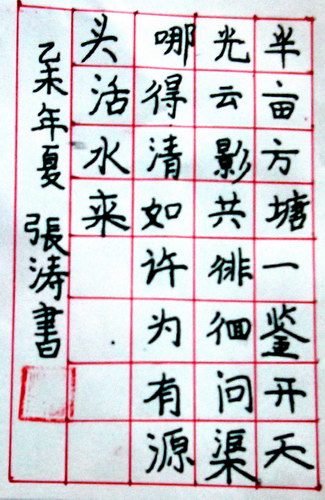 半亩方塘一鉴开天
光云影共徘徊问渠
哪得清如许为有源
头活水来
乙未年夏 張涛書